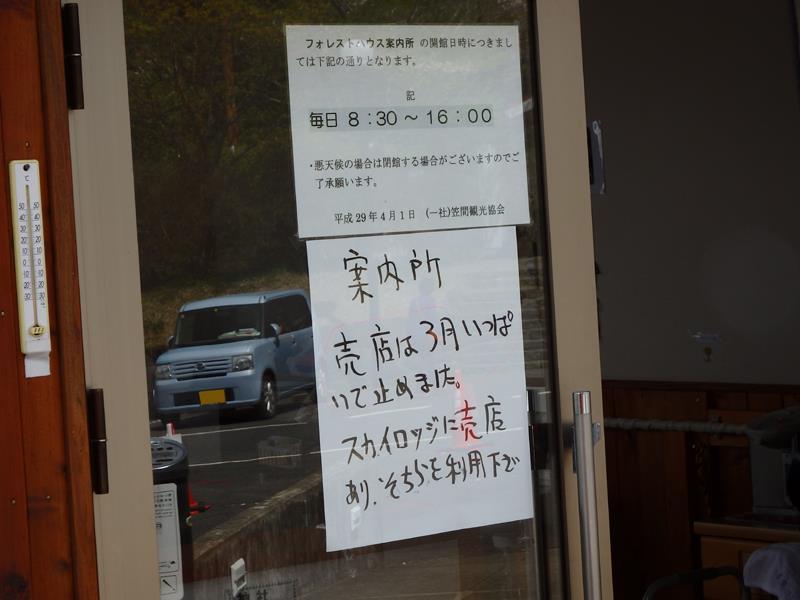 フォレストハウス案内所 の開館日時につきまし
ては下記の通りとなります。
記
毎日 8：30～16：00
・悪天候の場合は閉館する場合がございますのでご
了承願います。
平成29年4月1日 (一社)笠間観光協会
案内所
売店は3月いっぱ
いで止めました。
スカイロッジに売店
あり、そちらを利用下さい
℃
50 50
40 40
30 30
20 20
10 10
0 0
10 10
20 20
30 30